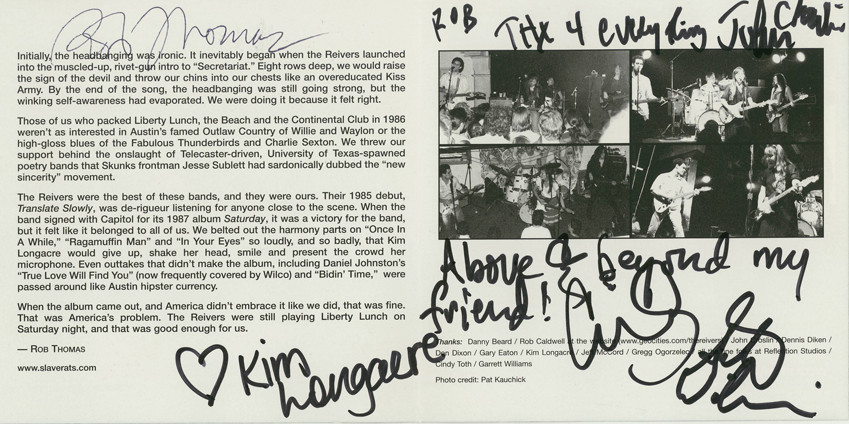 Rob Thomas
Initially, the headbanging was ironic. It inevitably began when the Reivers launched
into the muscled-up, rivet-gun intro to “Secretariat.” Eight rows deep, we would raise
the sign of the devil and throw our chins into our chests like an overeducated Kiss
Army. By the end of the song, the headbanging was still going strong, but the
winking self-awareness had evaporated. We were doing it because it felt right.
Those of us who packed Liberty Lunch, the Beach and the Continental Club in 1986
weren’t as interested in Austin’s famed Outlaw Country of Willie and Waylon or the
high-gloss blues of the Fabulous Thunderbirds and Charlie Sexton. We threw our
support behind the onslaught of Telecaster-driven, University of Texas-spawned
poetry bands that Skunks frontman Jesse Sublett had sardonically dubbed the “new
sincerity” movement.
The Reivers were the best of these bands, and they were ours. Their 1985 debut,
Translate Slowly, was de-rigueur listening for anyone close to the scene. When the
band signed with Capitol for its 1987 album Saturday, it was a victory for the band,
but it felt like it belonged to all of us. We belted out the harmony parts on “Once In
A While,” “Ragamuffin Man” and “In Your Eyes” so loudly, and so badly, that Kim
Longacre would give up, shake her head, smile and present the crowd her
microphone. Even outtakes that didn’t make the album, including Daniel Johnston’s
“True Love Will Find You” (now frequently covered by Wilco) and “Bidin’ Time,” were
passed around like Austin hipster currency.
When the album came out, and America didn’t embrace it like we did, that was fine.
That was America’s problem. The Reivers were still playing Liberty Lunch on
Saturday night, and that was good enough for us.
— ROB THOMAS
www.slaverats.com
Kim
Longacre
ROB
THX 4 everything John
Above & beyond my
friend!
Thanks: Danny Beard / Rob Caldwell at the website (www.geocities.com/thereivers) / John Croslin / Dennis Diken /
Don Dixon / Gary Eaton / Kim Longacre / Jeff McCord / Gregg Ogorzelec / all the fine folks at Reflection Studios /
Cindy Toth / Garrett Williams
Photo credit: Pat Kauchick